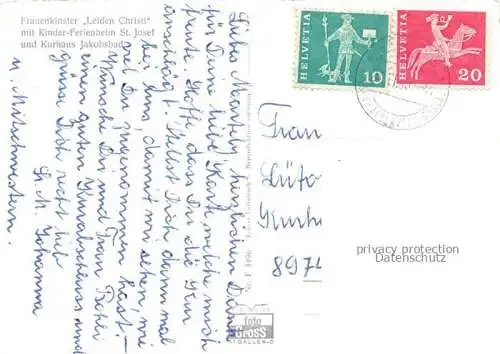 Frauenkloster „Leiden Christi"
mit Kinder-Ferienheim St. Josef
und Kurhaus Jakobsbad
HELVETIA
10
HELVETIA
20
Liebs Marteli, herzlichen Dank
für Deine liebe Karte welche mich
freute. Hoffe, dass Du die Kur
anschlägt. Stellst Dich dann mal
bei uns, damit wir sehen wie
Du zugenommen hast. —
Wünsche Dir und Frau
einen guten Kurabschluss und
grüsse Dich recht lieb
Sr. M. Johanna
u. Mitschwestern.
Frau
Kurh
897
foto
Gross
ST.GALLEN
privacy protection
Datenschutz